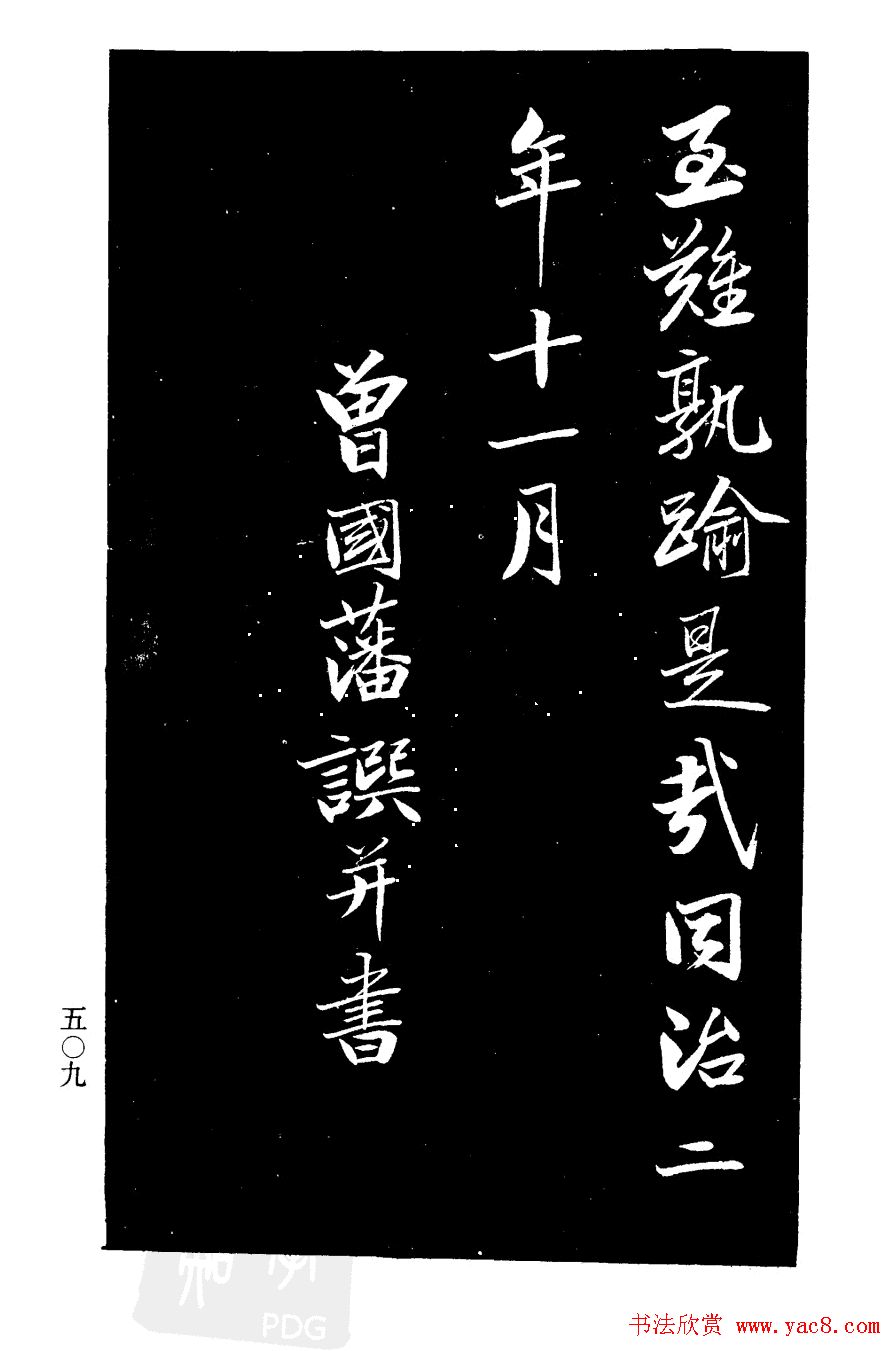 至難孰踰是哉同治二
年十一月
曾國藩譔并書
五〇九
PDG
书法欣赏 www.yac8.com